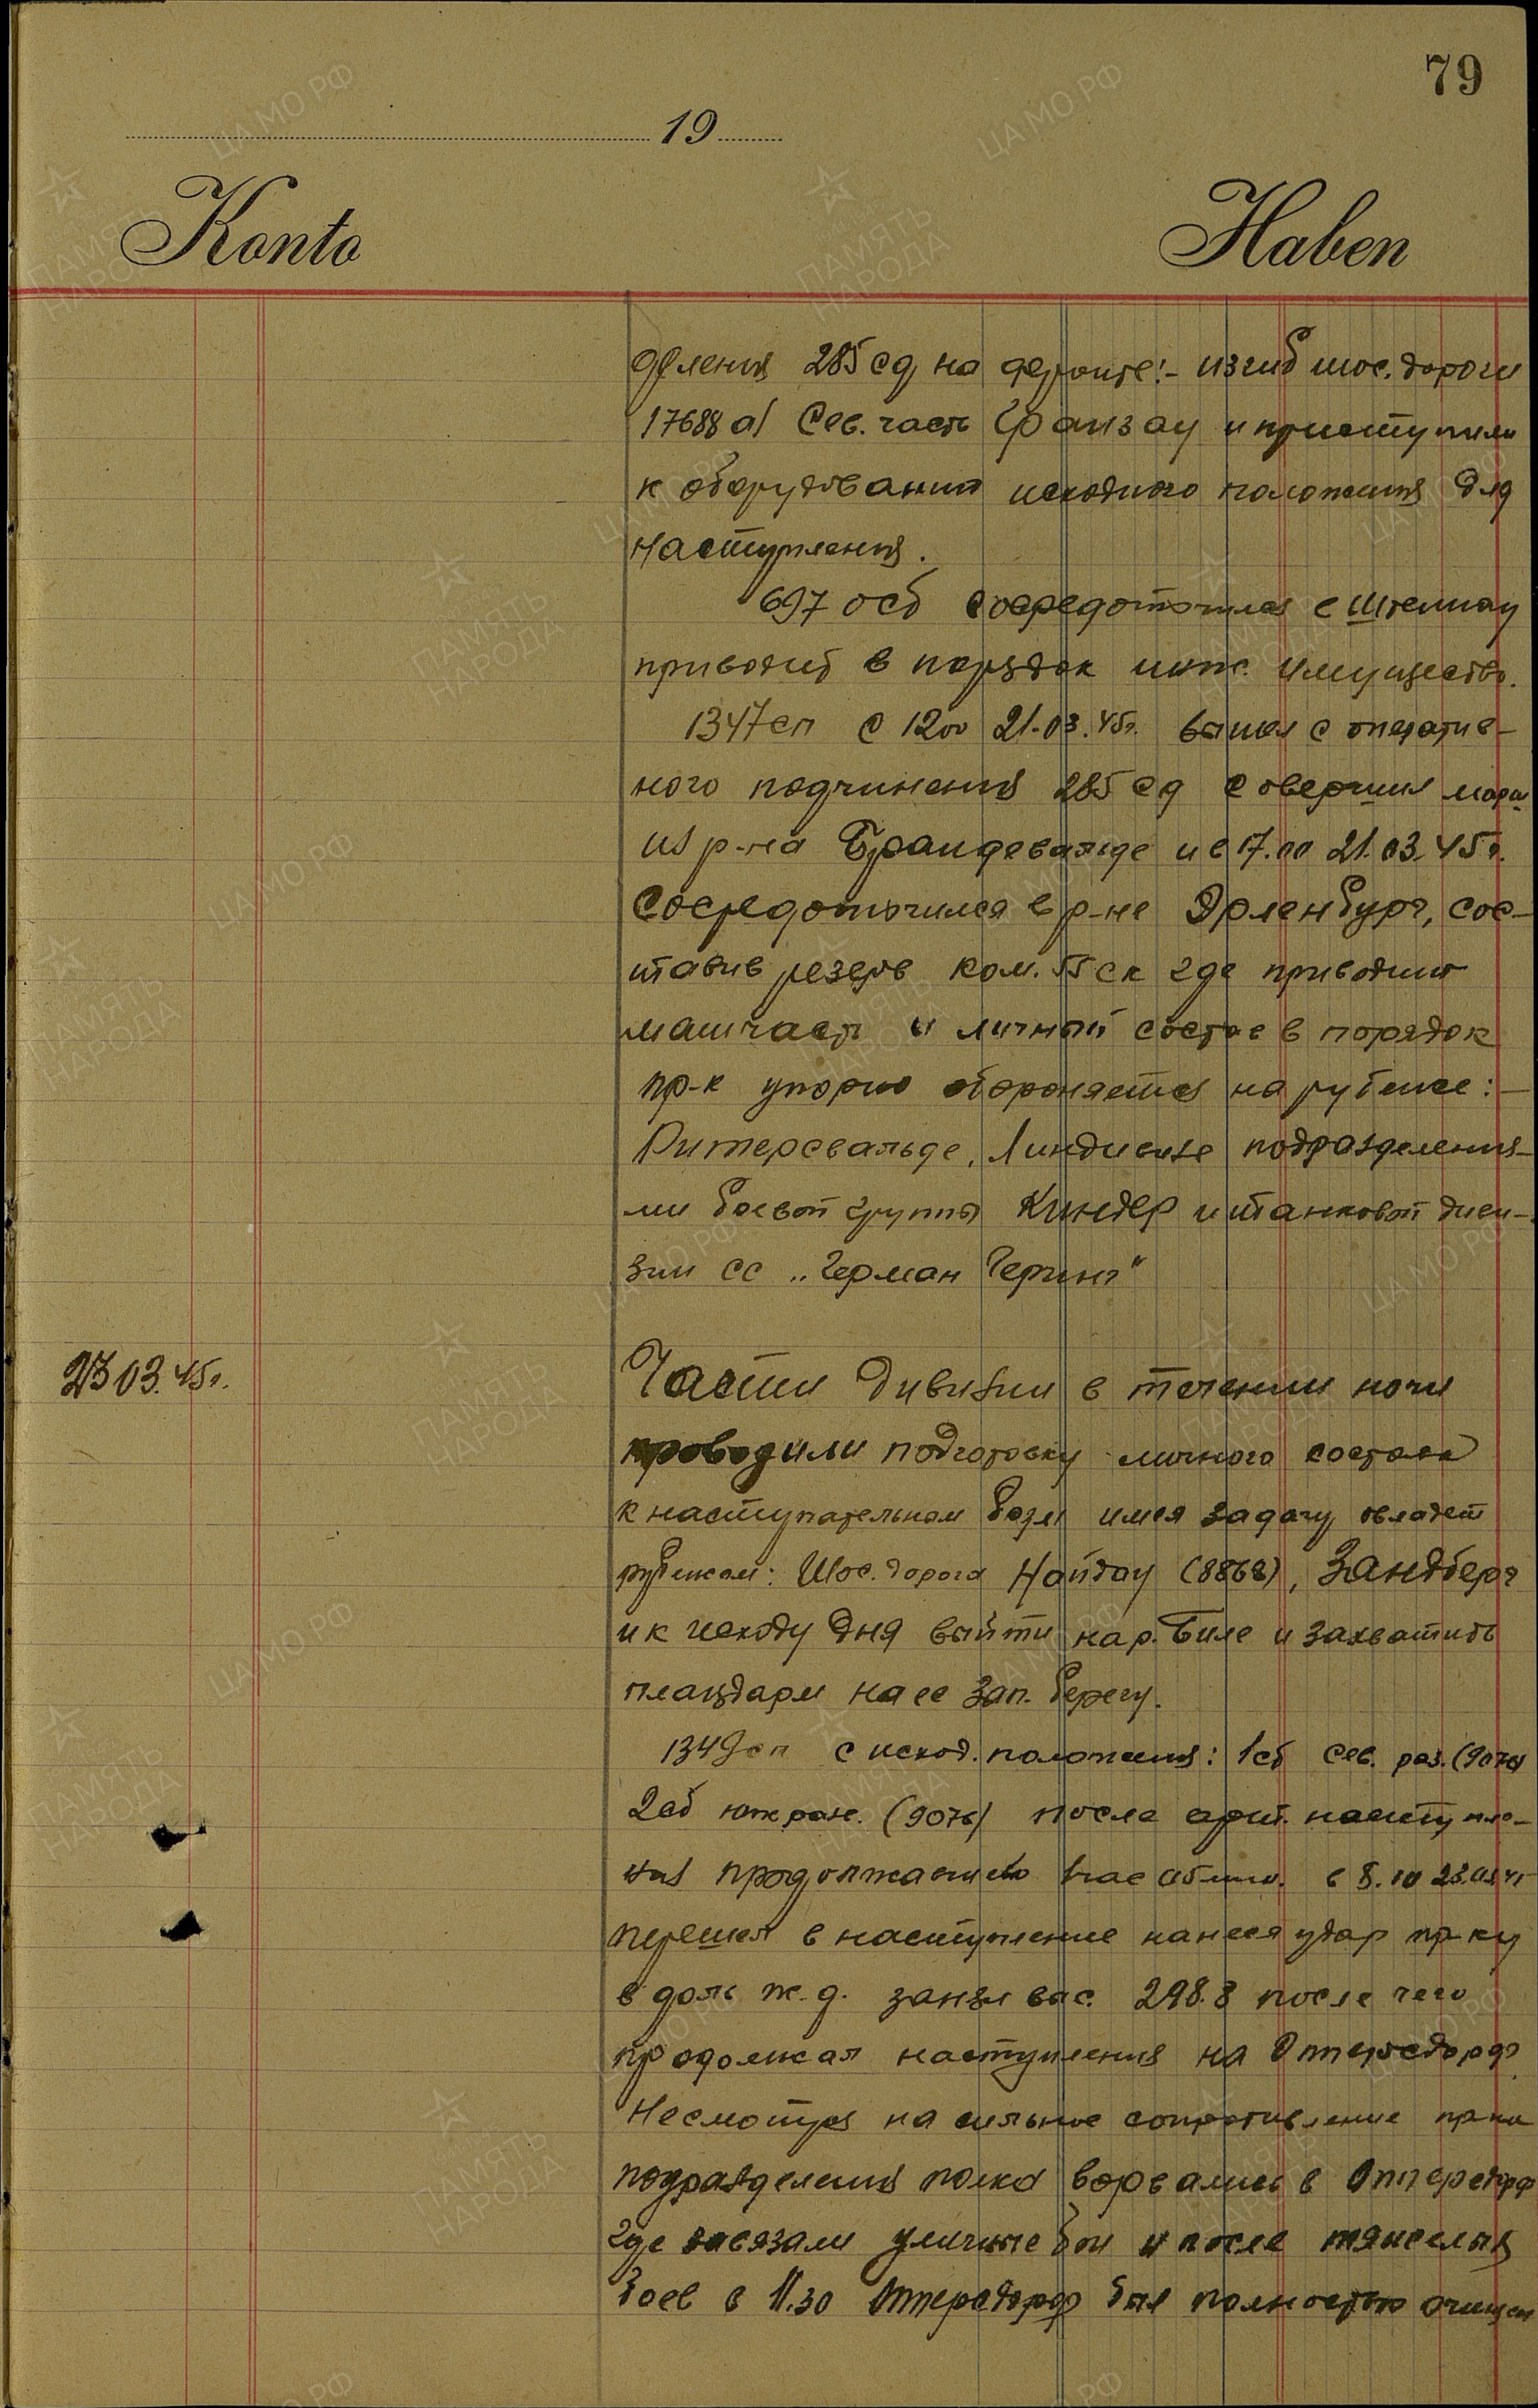 79
19
Konto Haben
деления 285 сд на фронте:- изгиб шос. дороги
17688 а/ Сев. часть Франзау и приступили
к оборудованию исходного положения для
наступления.
697 осб сосредоточился с Штеннау
приводит в порядок инж. имущество.
1347 сп с 1200 21.03.45г. вышел с оператив-
ного подчинения 285 сд совершил марш
из р-на Брандевальде и в 17.00 21.03.45г.
Сосредоточился в р-не Эрленбург, сос-
тавив резерв ком. 55 ск где приводит
матчасть и личный состав в порядок
пр-к упорно обороняется на рубеже:-
Ритерсвальде, Линдивизе подразделения-
ми боевой группы Киндер и танковой диви-
зии СС „Герман Геринг"
23 03.45г. Части дивизии в течении ночи
проводили подготовку личного состава
к наступательном боям имея задачу овладет
рубежом: Шос. дорога Нойдау (8868), Зандберг
и к исходу дня выйти на р. Биле и захватить
плацдарм на ее зап. берегу.
1349 сп с исход. положения: 1сб сев. раз. (9076)
2сб юж. (9076) после арт. наступле-
ния продолжательно в 8.10 23.03.45
перешел в наступление нанеся удар пр-ку
вдоль ж.д. занял выс. 298.8 после чего
продолжал наступления на Оттерсдорф.
Несмотря на сильное сопротивление пр-ка
подразделения полка ворвались в Оттерсдорф
где завязали уличные бои и после тяжелых
боев в 11.30 Оттерсдорф был полностью очищен